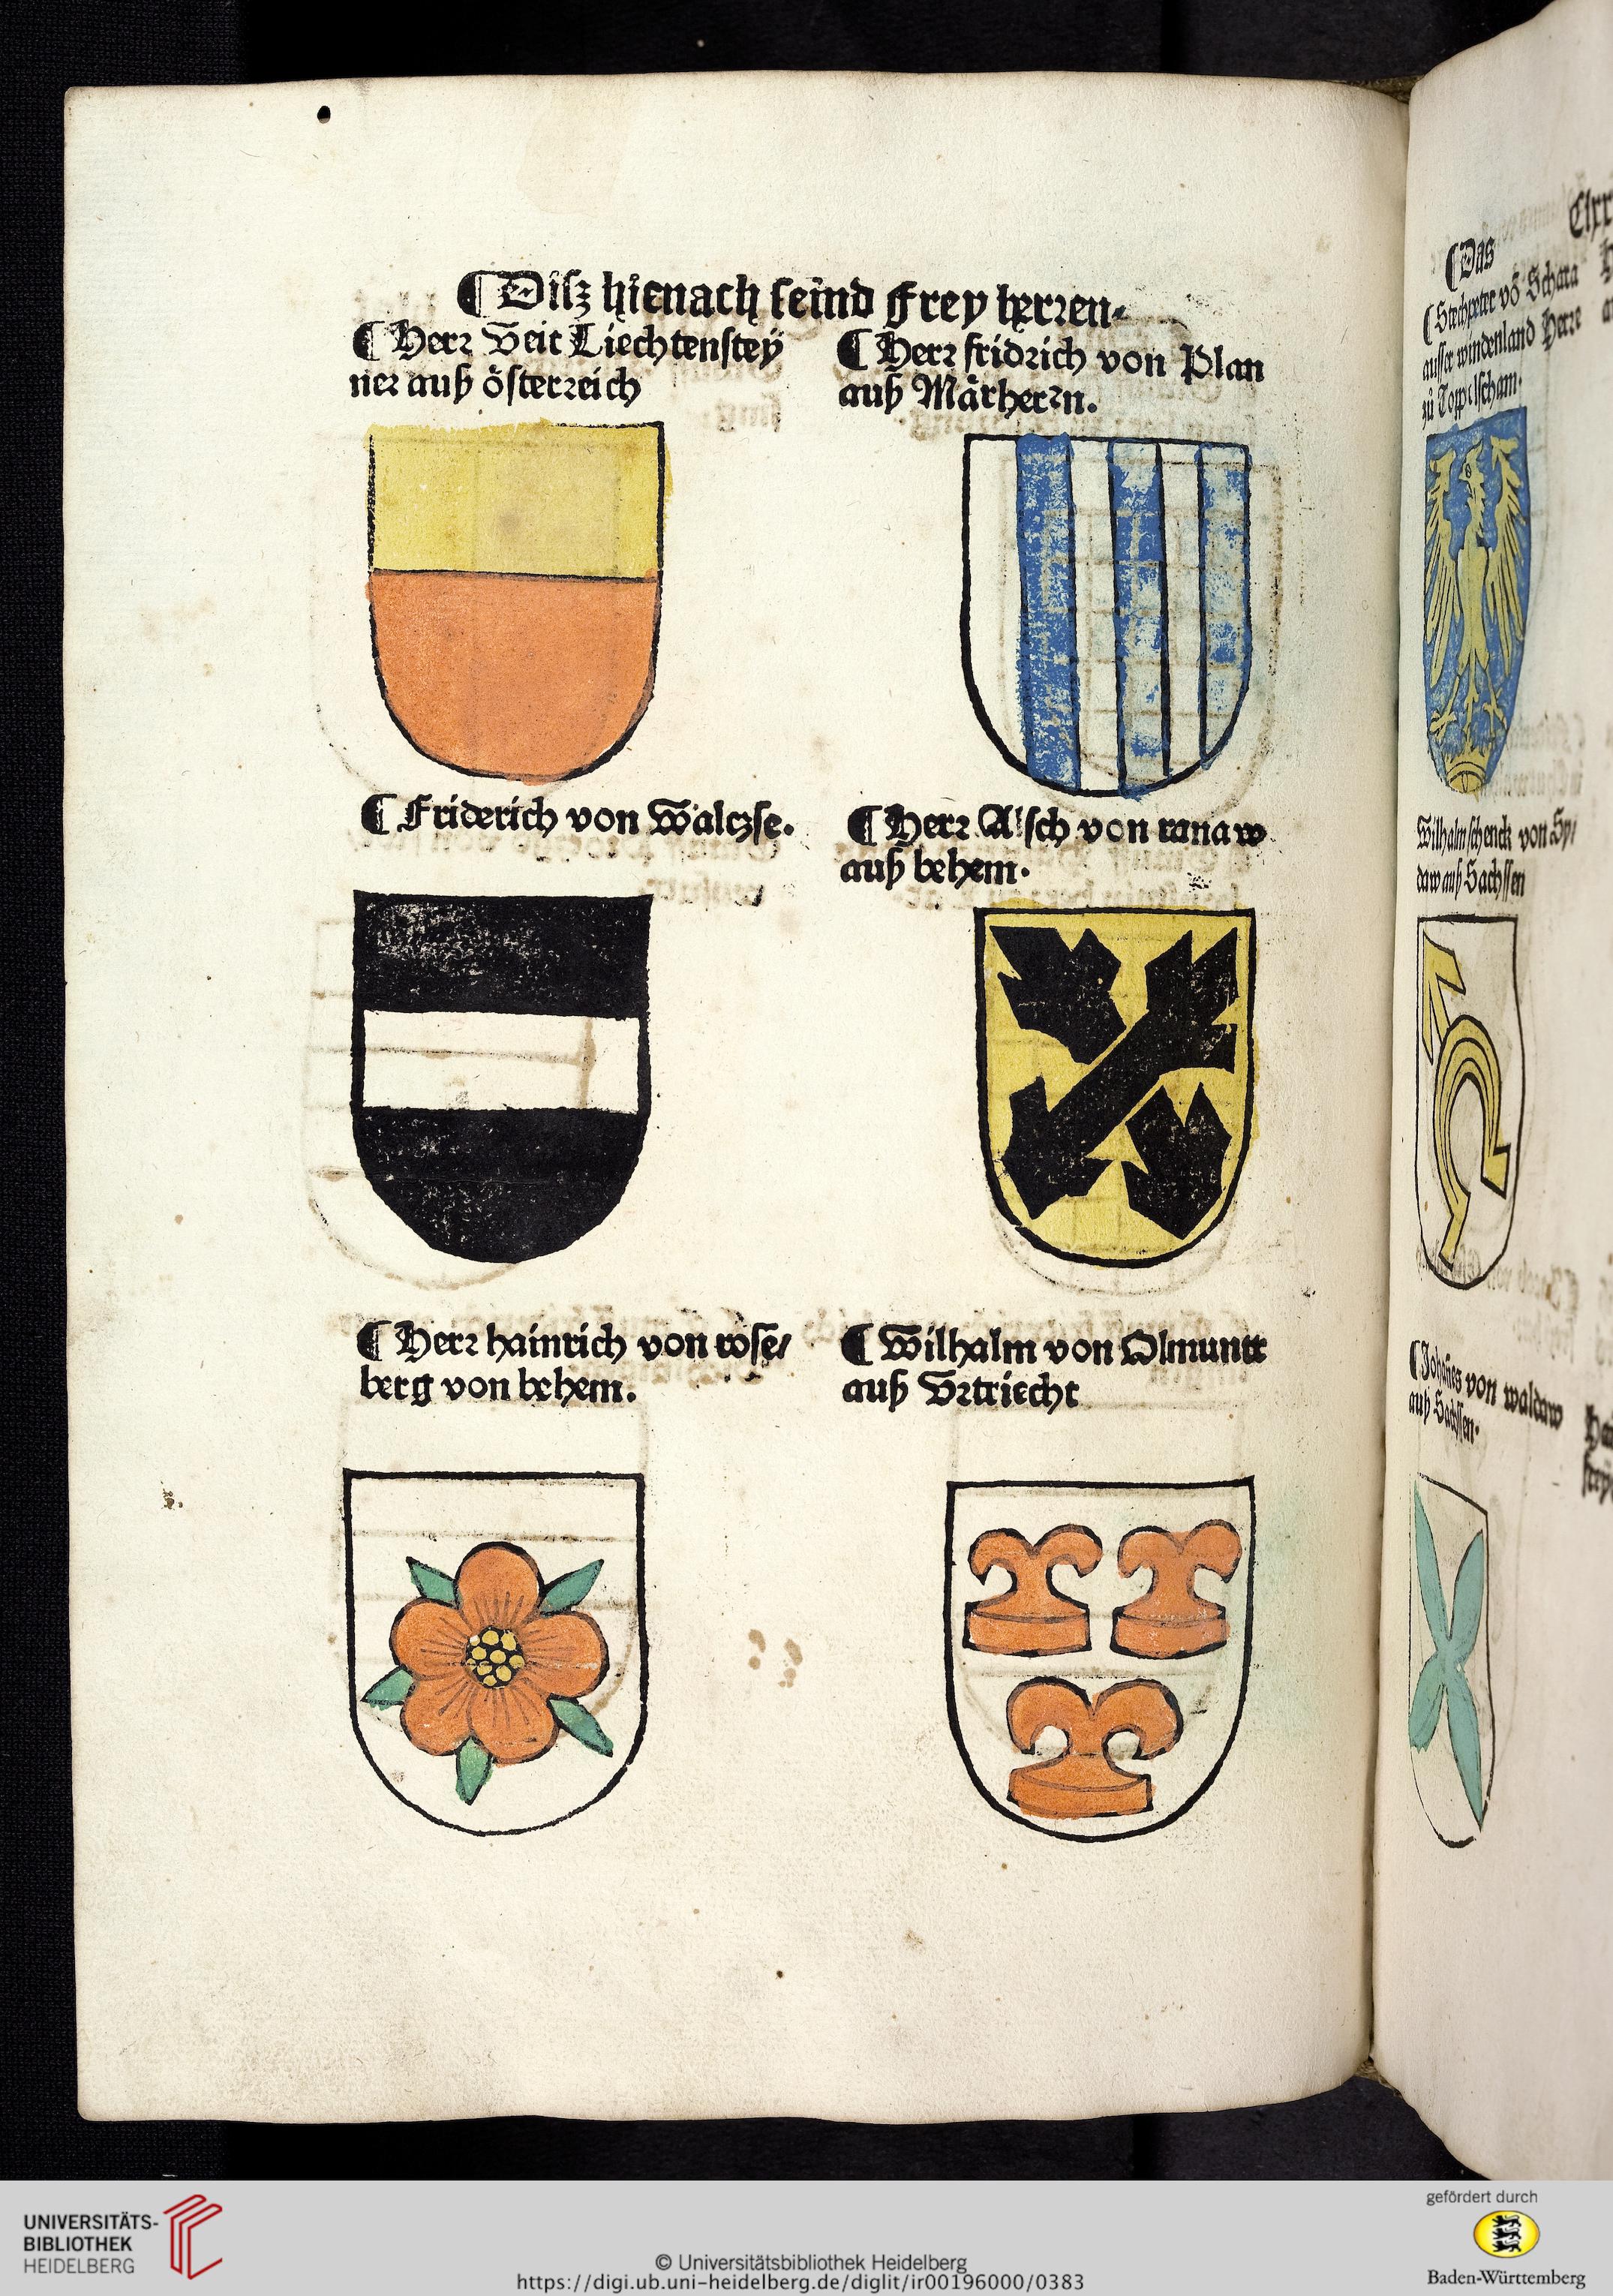 ¶ Disz hienach seind Frey herren.
¶ Herr Veit Liechtenstey
ner auß österreich
¶ Herr fridrich von Plan
auß Märherrn.
¶ Friderich von Wälczse.
¶ Herr Alsch von ranaw
auß behem.
¶ Herr hainrich von rose/
berg von behem.
¶ Wilhalm von Olmuntt
auß Vrtriecht
¶ Das
¶ Stechpeter vō Schara
ausser windenland Herre
Wilhalm schenck von Sy/
daw auß Sachssen
¶ Johānes von waldaw
auß Sachssen.
UNIVERSITÄTS-
BIBLIOTHEK
HEIDELBERG
© Universitätsbibliothek Heidelberg
https://digi.ub.uni-heidelberg.de/diglit/ir00196000/0383
gefördert durch
Baden-Württemberg